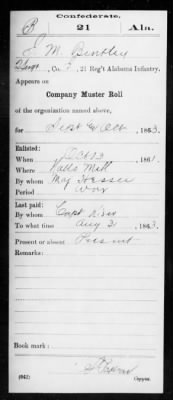 Confederate.
B 21 Ala.
J. M. Bentley
Co. 21 Reg't Alabama Infantry.
Appears on
Company Muster Roll
of the organization named above,
for Sept & Oct, 1863.
Enlisted:
When Oct 13, 1861.
Where Halls Mill
By whom Maj Hessee
Period War
Last paid:
By whom Capt
To what time Aug 31, 1863.
Present or absent Present
Remarks:
Book mark:
(642) Copyist.